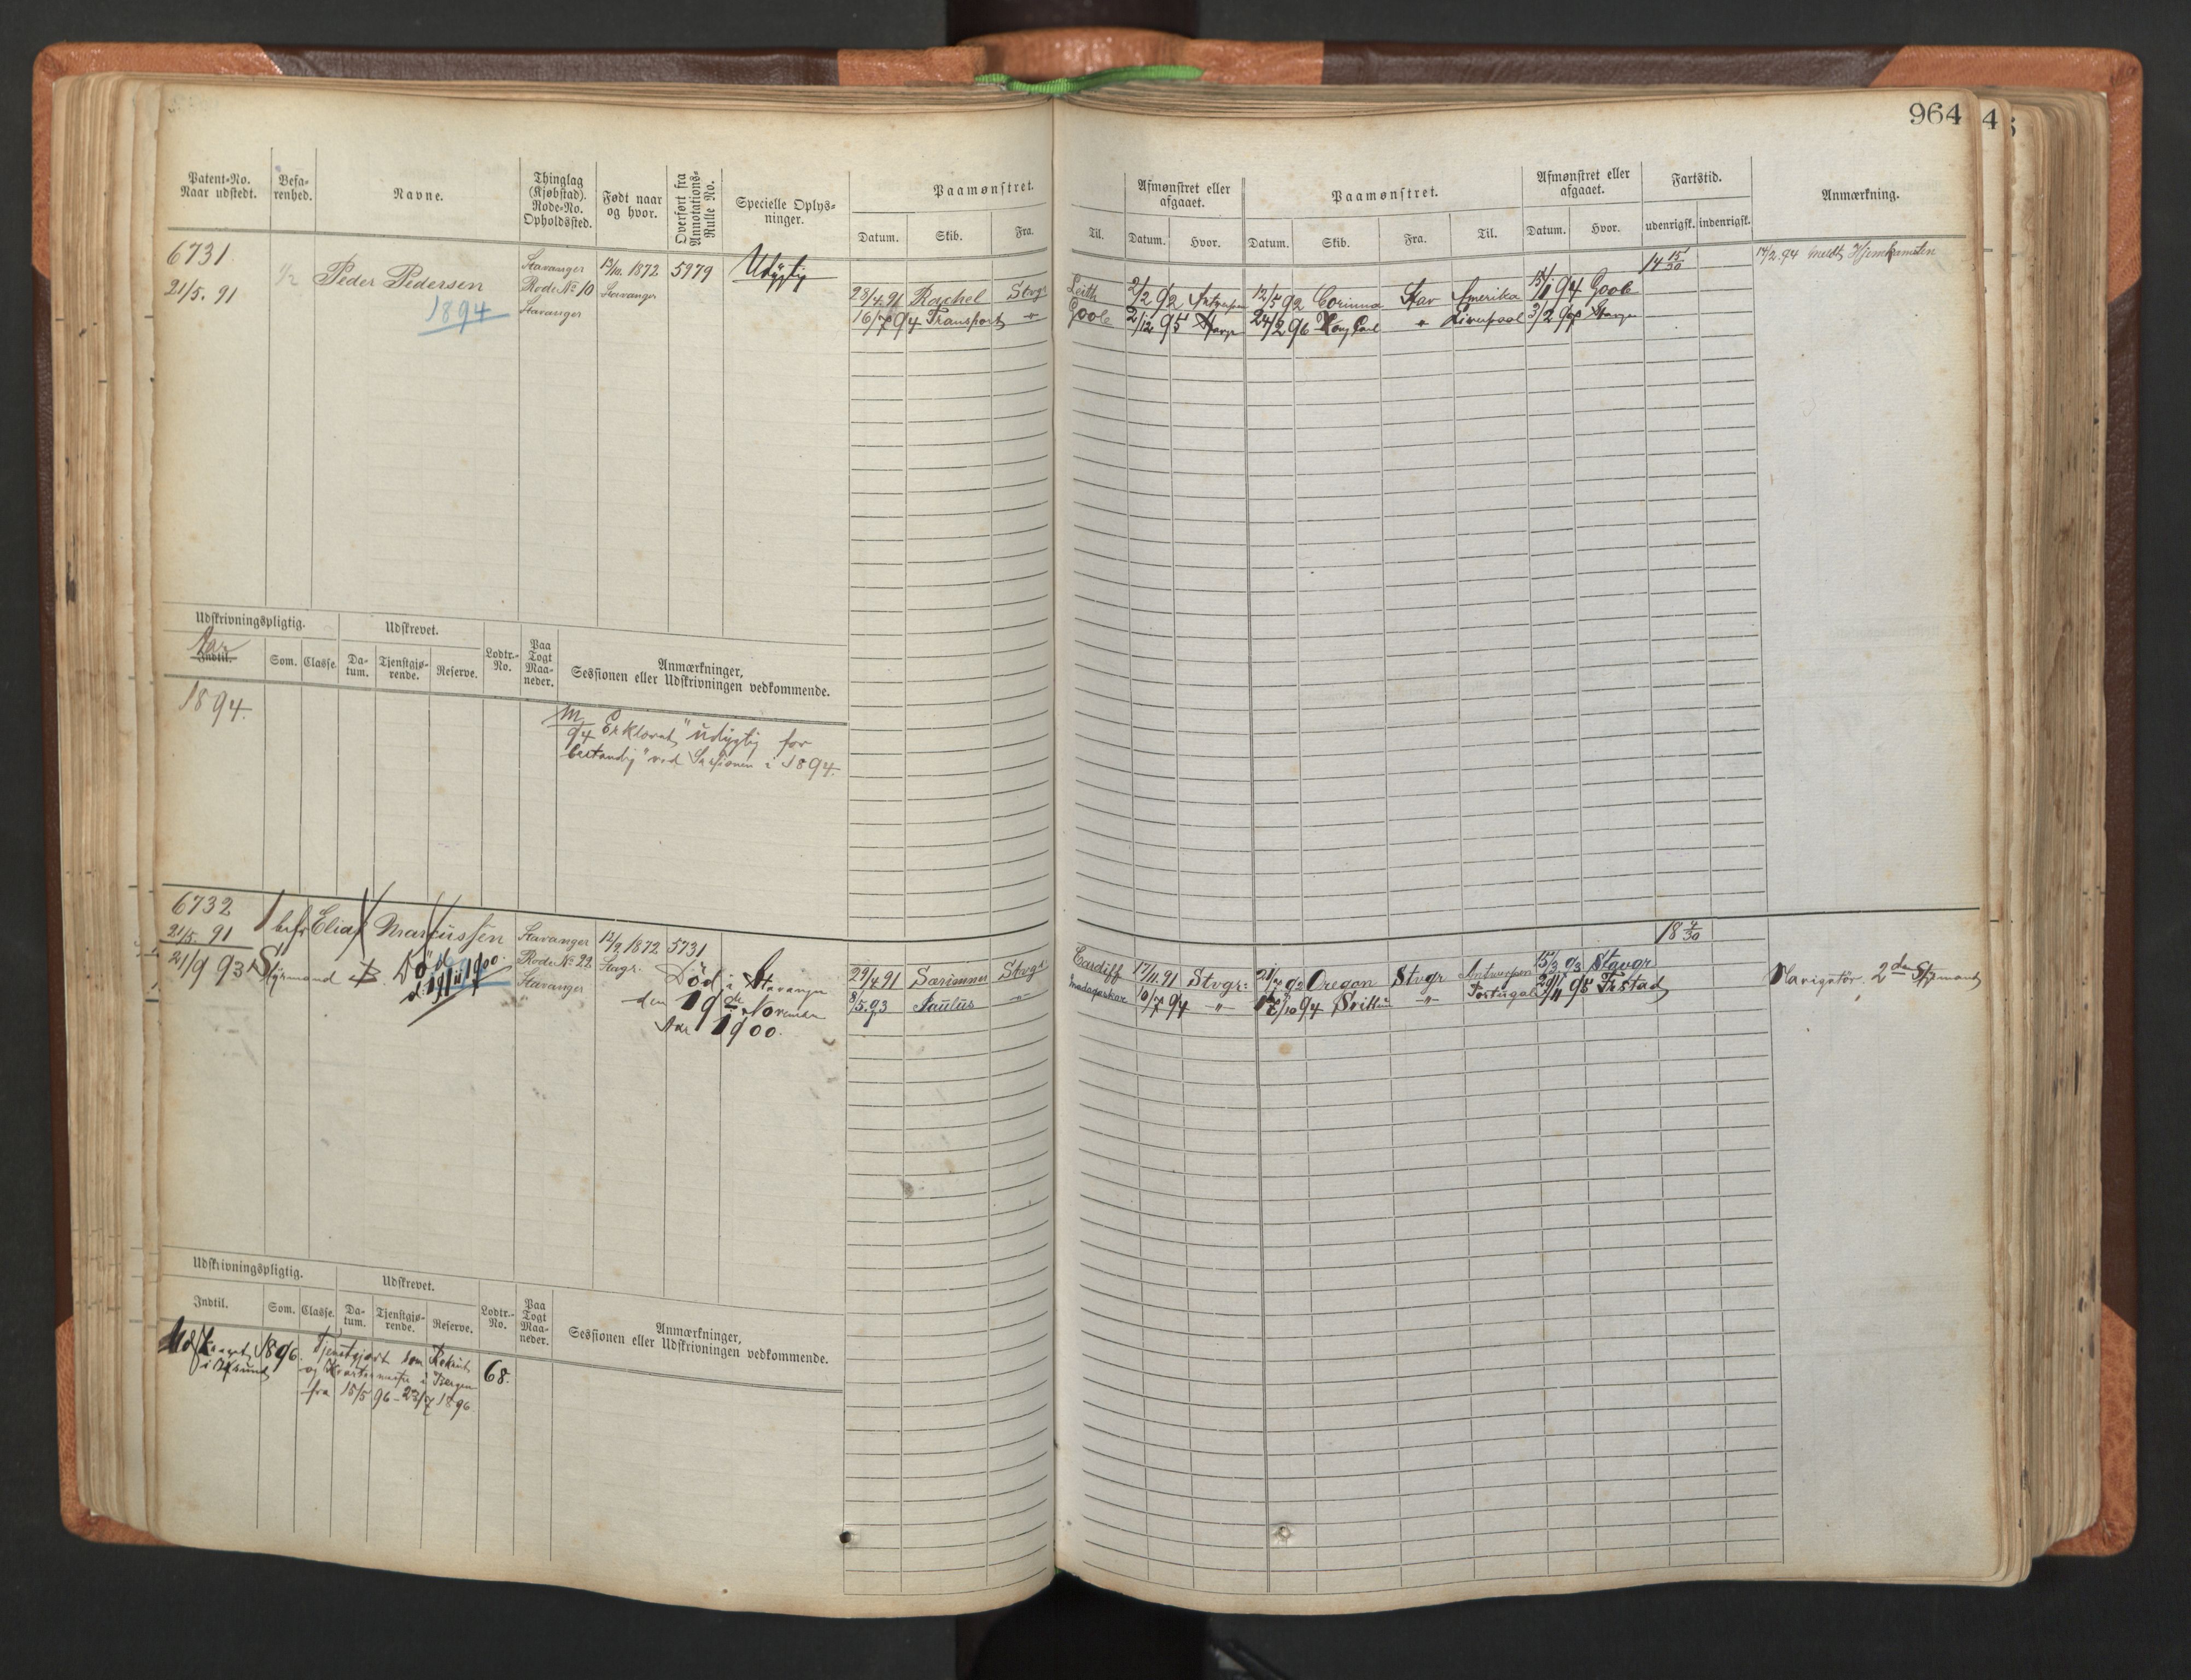 964
Patent-No.
Naar udstedt.
Befa-
renhed.
Navne.
Thinglag
(Kjøbstad).
Rode-No.
Opholdssted.
Født naar
og hvor.
Overført fra
Annotations-
Rulle No.
Specielle Oplys-
ninger.
Paamønstret.
Datum. Skib. Fra.
Til.
Afmønstret eller
afgaaet.
Datum. Hvor.
Paamønstret.
Datum. Skib. Fra. Til.
Afmønstret eller
afgaaet.
Datum. Hvor.
Fartstid.
udenrigsk. indenrigsk.
Anmærkning.
6731
21/5. 91
1/2
Peder Pedersen
1894
Stavanger
Rode No 10
Stavanger
1872
Stavanger
5979
Udygtig
23/4 91 Rachel Stvgr
16/7 94 Transport -"-
Leith 2/2 92 Antwerpen 12/5 92 Corinna Stav Amerika 94 Goole
Goole 2/12 95 24/2 96 Kong Carl " Liverpool 3/2
14 15/30
14/2 94 meldt Hjemkomsten
Udskrivningspligtig.
Udskrevet.
Aar
Indtil.
Som. Classe. Da-
tum.
Tjenstgjø-
rende.
Reserve.
Lodtr.-
No.
Paa
Togt
Maa-
neder.
Anmærkninger,
Sessionen eller Udskrivningen vedkommende.
1894.
94 Erklæret "udygtig for
bestandig" ved Sessionen i 1894.
6732
21/5. 91
21/9 93
1 bef
Elias Marcussen
Styrmand
Död
d. 19/11 1900.
Stavanger
Rode No 22
Stavanger
12/9 1872
Stvgr.
5731
Död i Stavanger
den 19de November
Aar 1900.
29/4 91 Særimner Stvgr
8/5 93 Paulus -"-
Cardiff 17/11.91 Stvgr: 21/7 92 Oregon Stvgr Antwerpen 15/3 93 Stavgr
Madagaskar 10/7 94 -"- 94 -"- Portugal 95
18 4/30
Navigatör. 2den Styrmand
Udskrivningspligtig.
Udskrevet.
Indtil.
Som. Classe. Da-
tum.
Tjenstgjø-
rende.
Reserve.
Lodtr.-
No.
Paa
Togt
Maa-
neder.
Anmærkninger,
Sessionen eller Udskrivningen vedkommende.
Udskrevet 1896. Tjenstgjort som Rekrut
i og i Bergen
fra 15/5 96 - 23/7 1896.
68.